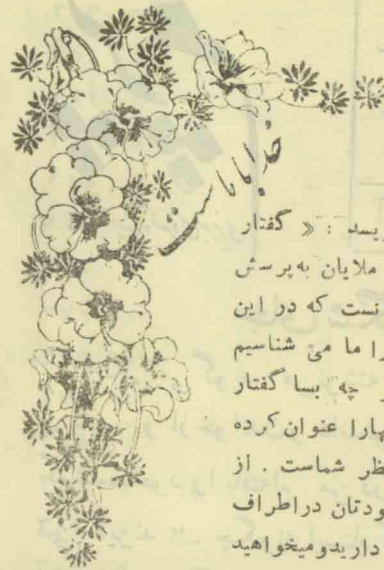 خدا با ماست
یسد : « گفتار
ملایان به پرسش
نست که در این
را ما می شناسیم
چه بسا گفتار
هارا عنوان کرده
ظر شماست . از
ودتان دراطراف
داریدومیخواهید